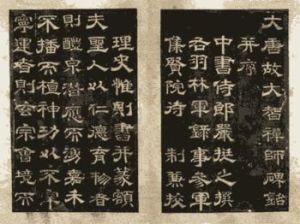 大唐故大智禪師碑銘
并序
中書侍郎嚴挺之撰
右羽林軍錄事參軍
集賢院待制兼校
理史惟則書并篆額
夫聖人以仁德育物者
則醴泉潛應而涌嘉禾
不播而植神功以不
運者則玄宗會境而